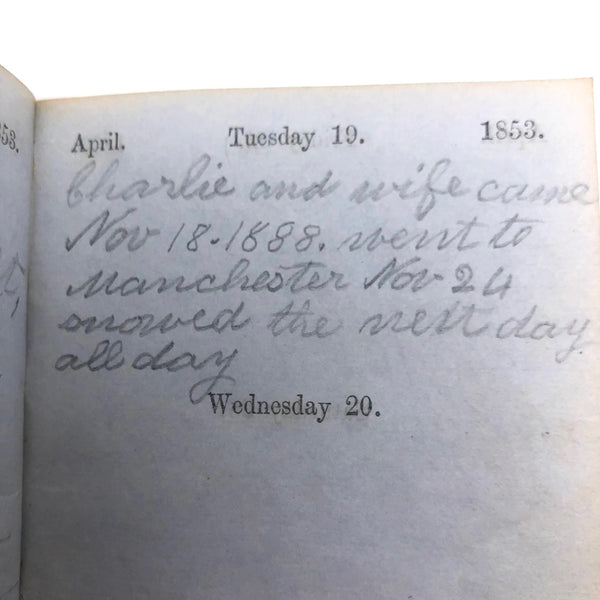 53.
April. Tuesday 19. 1853.
Charlie and wife came
Nov 18.1888. went to
Manchester Nov 24
snowed the next day
all day
Wednesday 20.